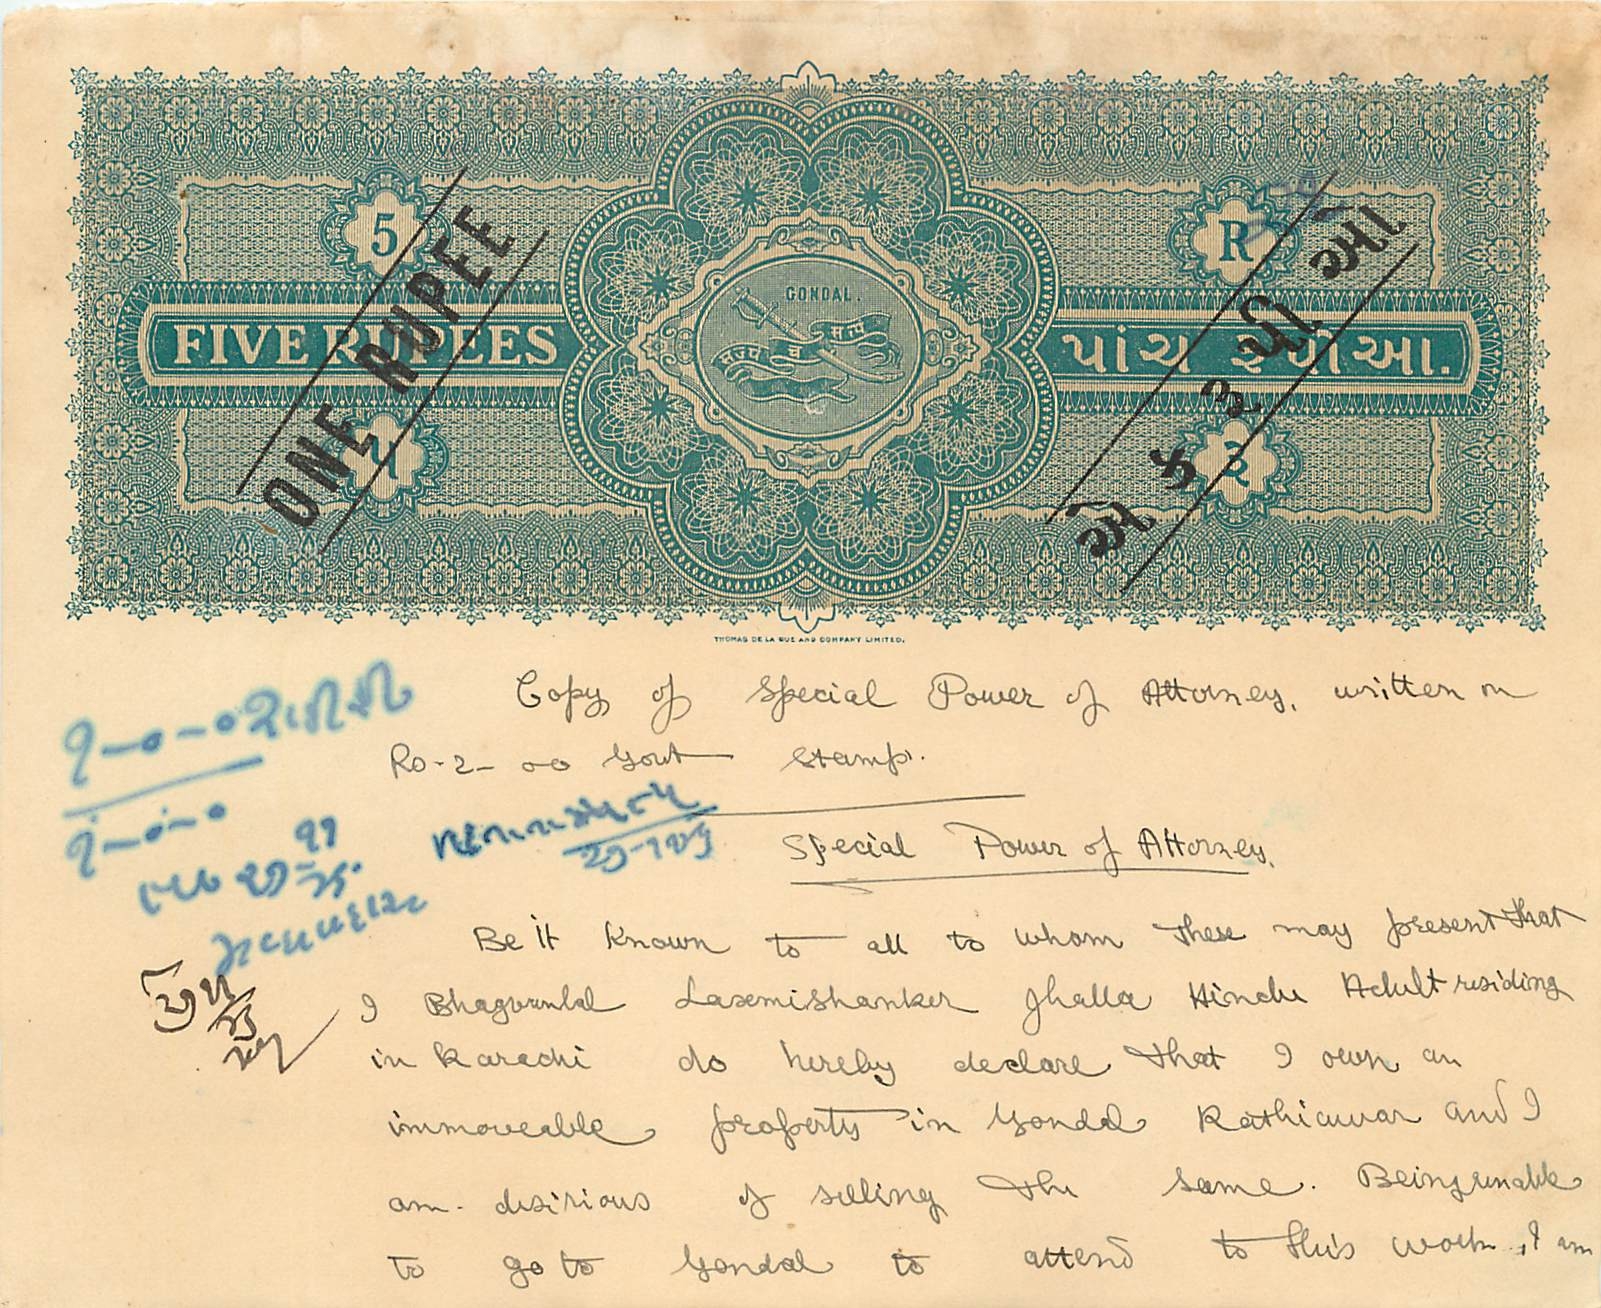 GONDAL.
5
R
ONE RUPEE
એક રૂપીઓ
FIVE RUPEES
પાંચ રૂપીઆ.
૫
રૂ
THOMAS DE LA RUE AND COMPANY LIMITED.
Copy of Special Power of Attorney, written on
Rs-2- 00 Govt Stamp.
Special Power of Attorney.
Be it Known to all to whom these may present that
I Bhagvanlal Laxmishanker Jhalla Hindu Adult residing
in Karachi do hereby declare that I own an
immoveable property in Gondal Kathiawar and I
am. desirious of selling the same. Being unable
to go to Gondal to attend to this work, I am